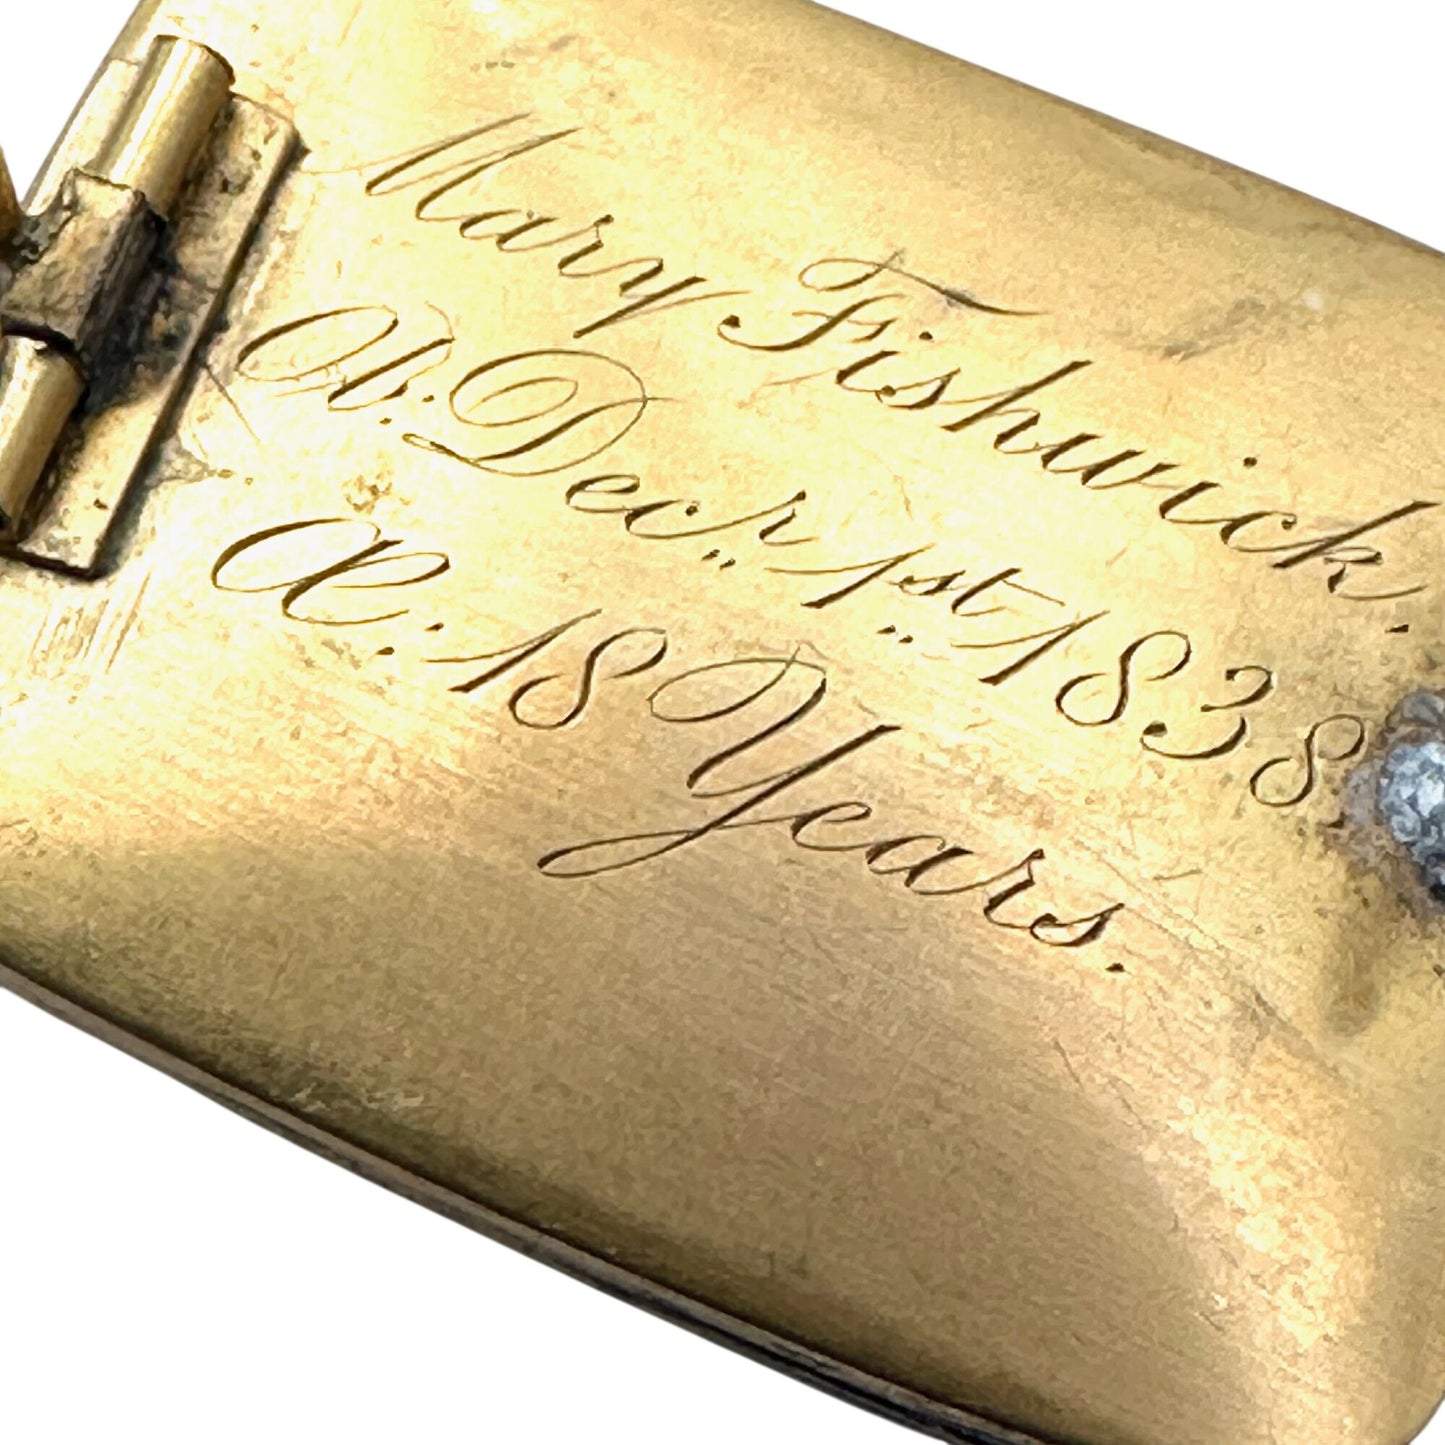 Mary Fishwick.
Ob: Decr 1st 1838
Œ: 18 Years.